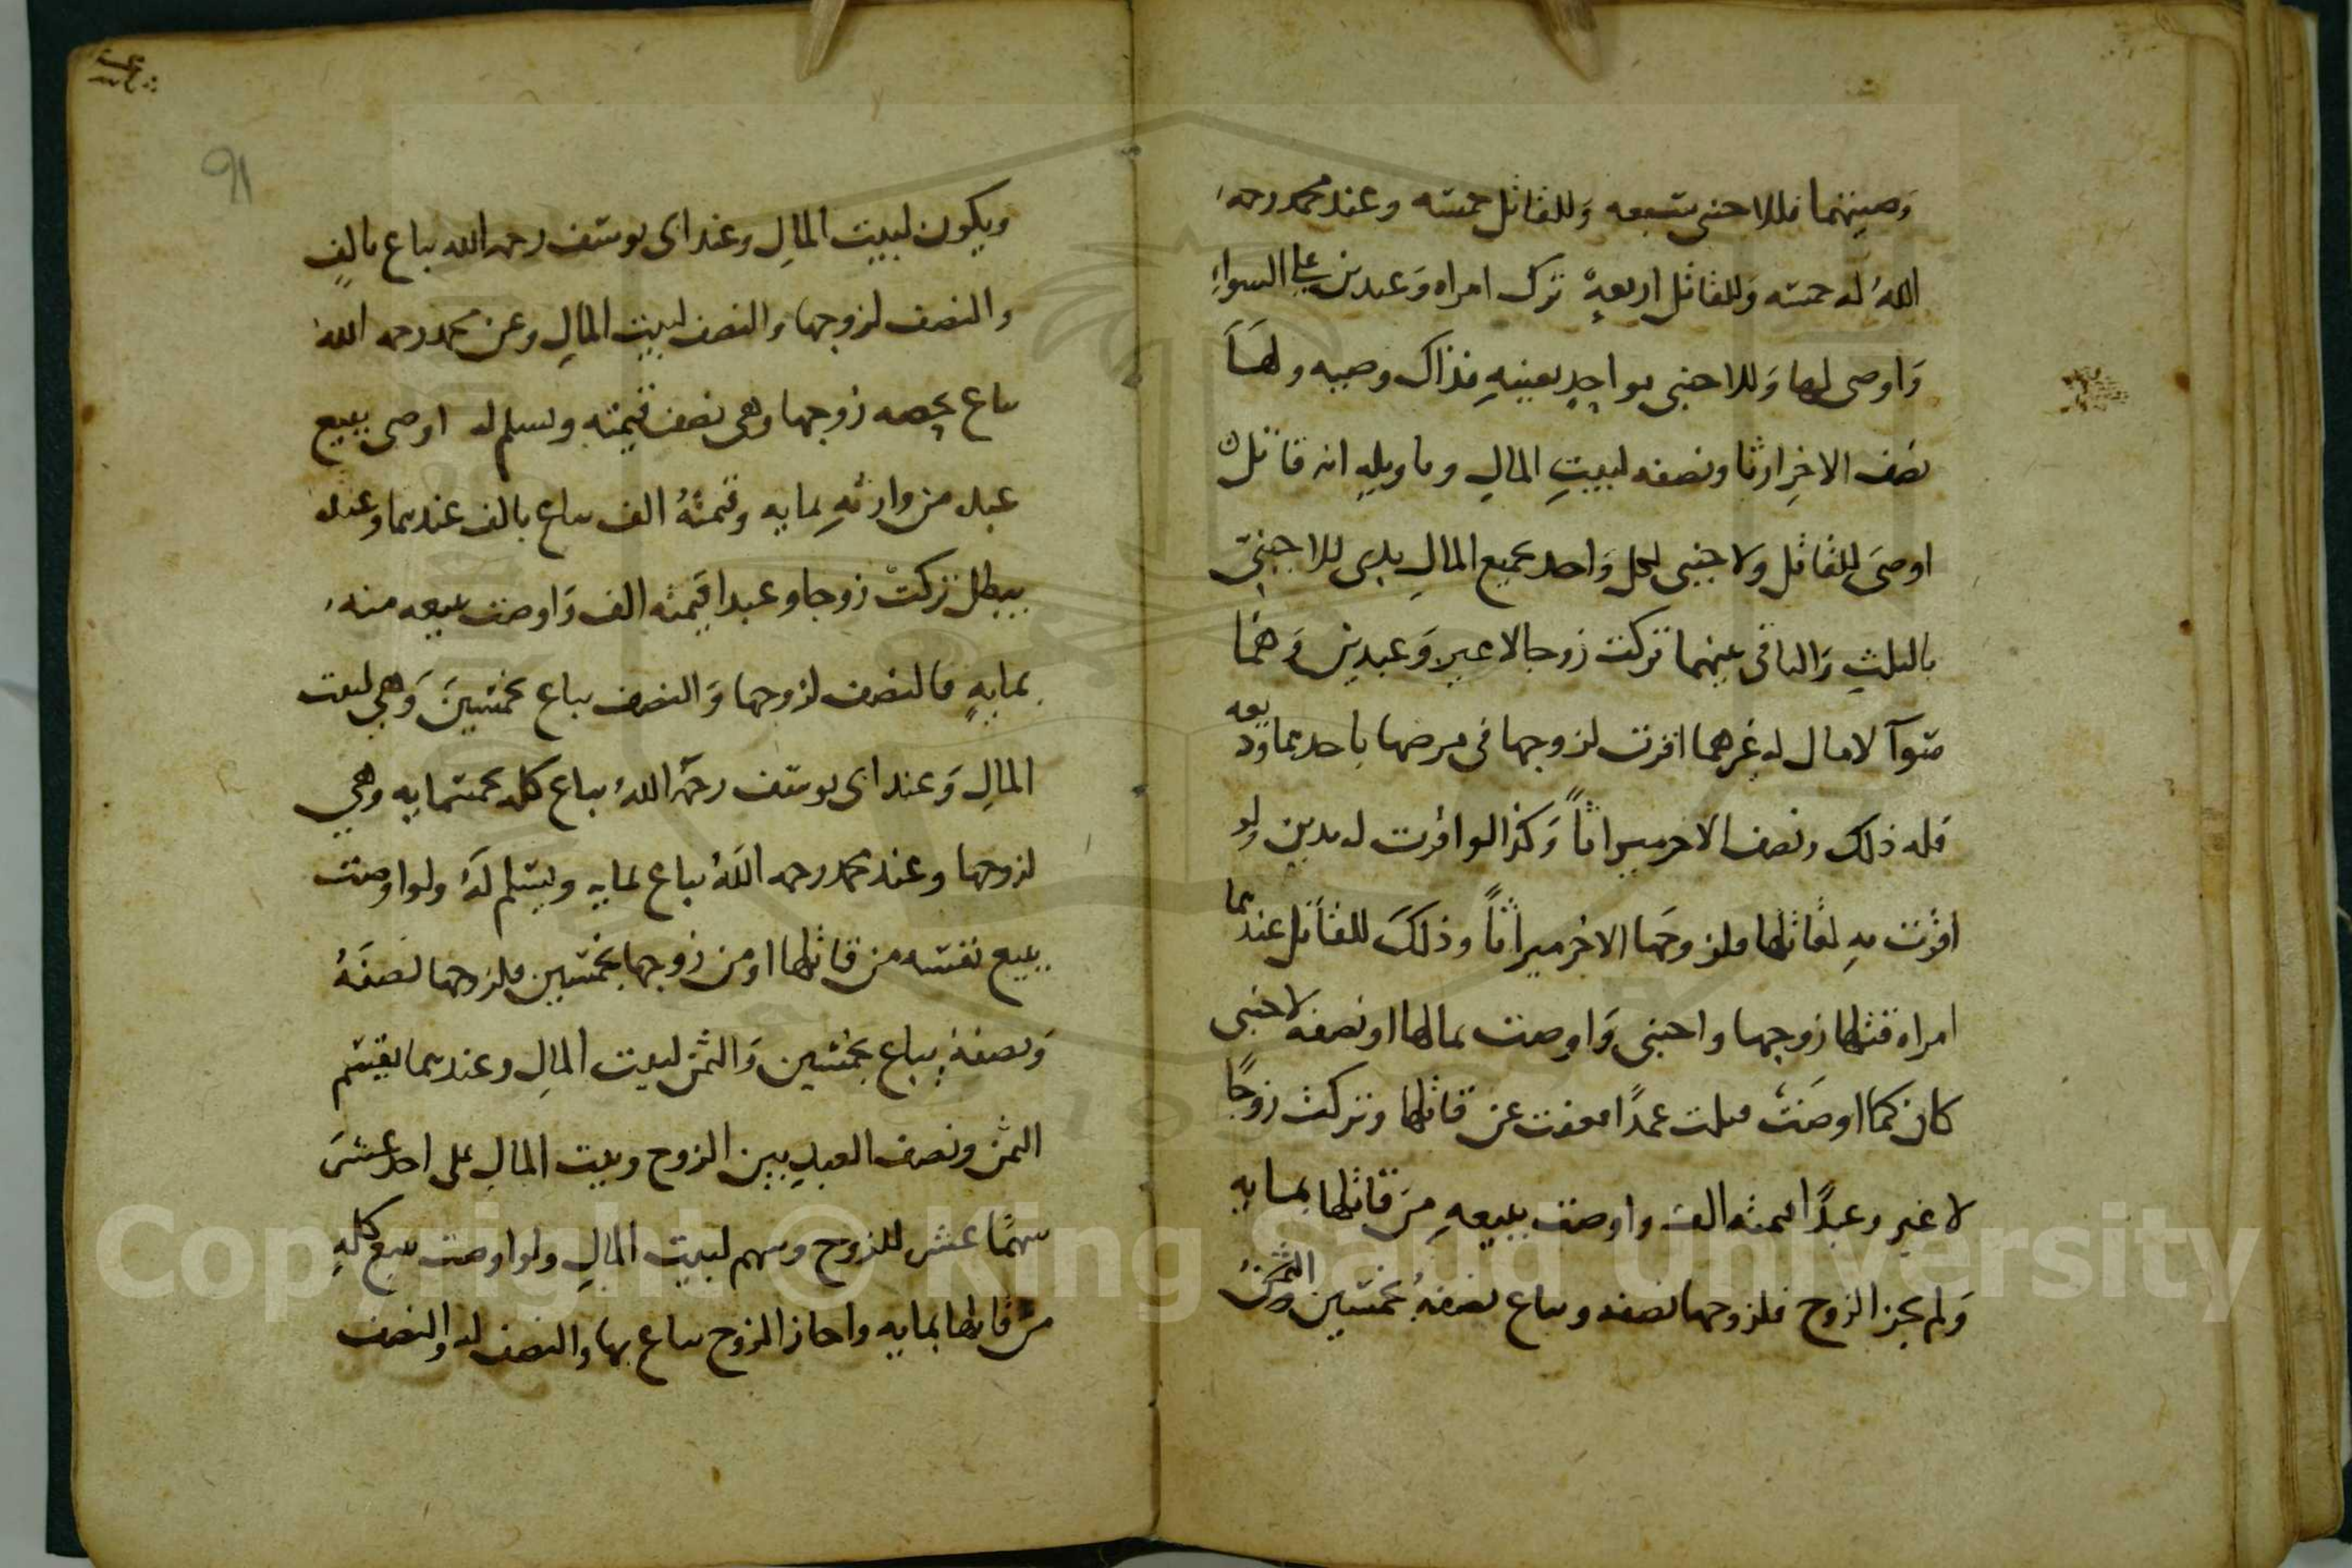 وصيتهما فللاجنبي تسعه وللقاتل خمسه وعند محمد رحمه
الله له خمسه وللقاتل اربعة ترك امراه وعبدين على السواء
واوصى لها وللاجنبي بواحد بعينه فذاك وصيه ولها
نصف الاخر ارثا ونصفه لبيت المال
اوصى للقاتل ولاجنبي لكل واحد بجميع المال بدى للاجنبي
بالثلث والباقي بينهما تركت زوجا لا غير وعبدين وهما
سوآ لا مال له غيرهما اقرت لزوجها في مرضها باحدهما وديعه
فله ذلك ونصف الاخر ميراثاً وكذا لو اقرت له بدين ولو
اقرت به لقاتلها فلزوجها الاخر ميراثاً وذلك للقاتل عندهما
امراه قتلها زوجها واجنبي واوصت بمالها او نصفه لاجنبي
كان كما اوصت قتلت عمدًا فعفت عن قاتلها وتركت زوجًا
لا غير وعبدًا قيمته الف واوصت ببيعه من قاتلها بمايه
ولم يجز الزوج فلزوجها نصفه ويباع نصفه بخمسين والثمن
91
ويكون لبيت المال وعند ابى يوسف رحمه الله يباع بالف
والنصف لزوجها والنصف لبيت المال وعن محمد رحمه الله
يباع بحصه زوجها وهى نصف قيمته ويسلم له اوصى ببيع
عبد من وارثه بمايه وقيمته الف يباع بالف عندهما وعنده
يبطل تركت زوجا وعبدا قيمته الف واوصت ببيعه منه
بمايه فالنصف لزوجها والنصف يباع بخمسين وهي لبيت
المال وعند ابى يوسف رحمه الله يباع كله بخمسمايه وهي
لزوجها وعند محمد رحمه الله يباع بمايه ويسلم له ولو اوصت
ببيع نفسه من قاتلها او من زوجها بخمسين فلزوجها نصفه
ونصفه يباع بخمسين والثمن لبيت المال وعندهما يقسم
الثمن ونصف العبد بين الزوج وبيت المال على احد عشر
سهمًا عشر للزوج وسهم لبيت المال ولو اوصت ببيع كله
من قاتلها بمايه واجاز الزوج يباع بها والنصف له والنصف
Copyright © King Saud University